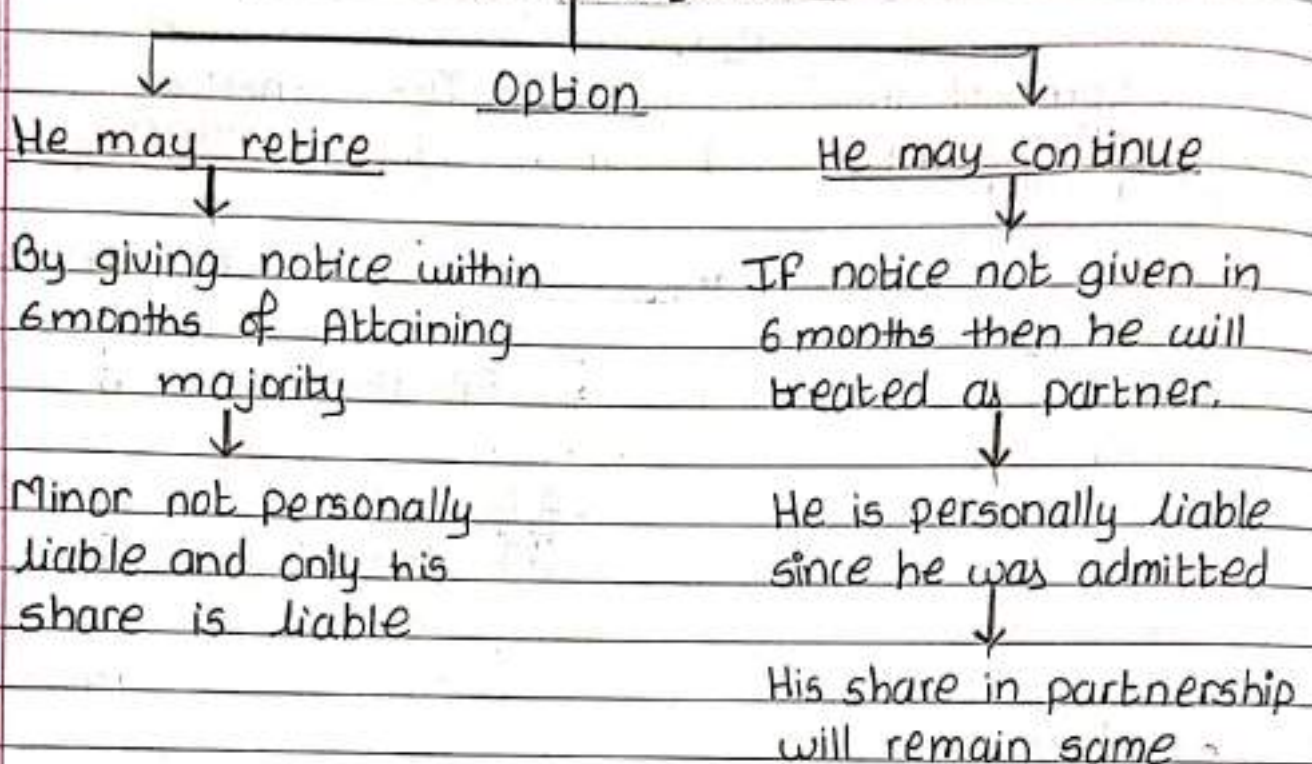 Option
He may retire
By giving notice within
6 months of Attaining
majority
Minor not personally
liable and only his
share is liable
He may continue
If notice not given in
6 months then he will
treated as partner.
He is personally liable
since he was admitted
His share in partnership
will remain same